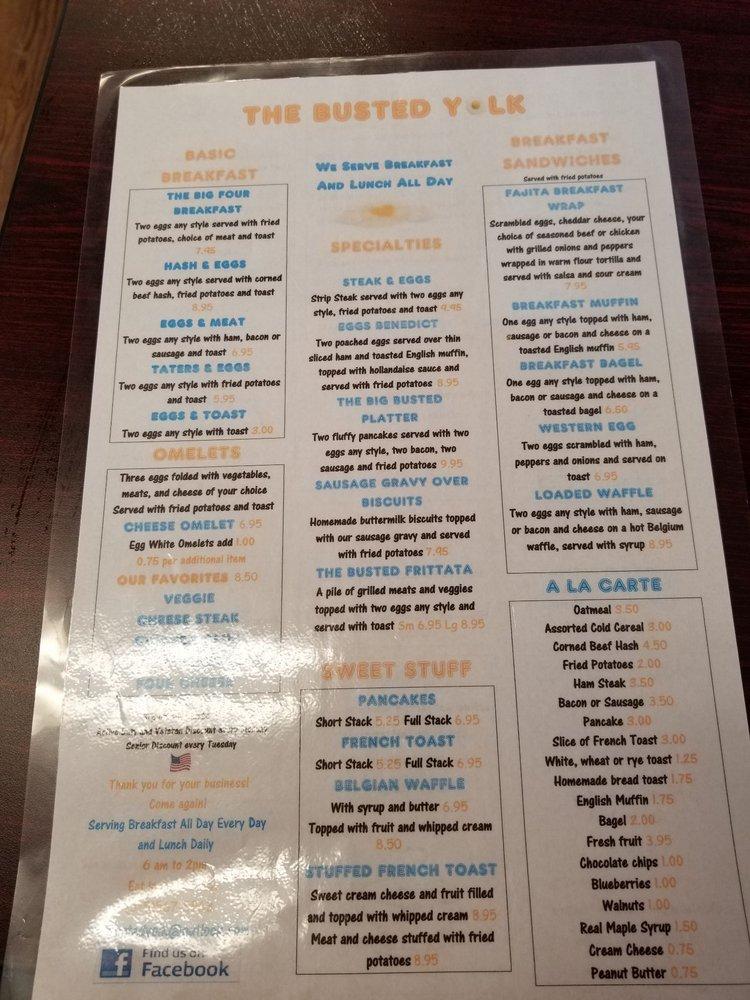 THE BUSTED Y LK
BASIC
BREAKFAST
THE BIG FOUR
BREAKFAST
Two eggs any style served with fried
potatoes, choice of meat and toast
7.95
HASH & EGGS
Two eggs any style served with corned
beef hash, fried potatoes and toast
8.95
EGGS & MEAT
Two eggs any style with ham, bacon or
sausage and toast 6.95
TATERS & EGGS
Two eggs any style with fried potatoes
and toast 5.95
EGGS & TOAST
Two eggs any style with toast 3.00
OMELETS
Three eggs folded with vegetables,
meats, and cheese of your choice
Served with fried potatoes and toast
CHEESE OMELET 6.95
Egg White Omelets add 1.00
0.75 per additional item
OUR FAVORITES 8.50
VEGGIE
CHEESE STEAK
FOUR CHEESE
Active Duty and Veteran Discount every Monday
Senior Discount every Tuesday
Thank you for your business!
Come again!
Serving Breakfast All Day Every Day
and Lunch Daily
6 am to 2pm
Find us on
Facebook
WE SERVE BREAKFAST
AND LUNCH ALL DAY
SPECIALTIES
STEAK & EGGS
Strip Steak served with two eggs any
style, fried potatoes and toast 9.95
EGGS BENEDICT
Two poached eggs served over thin
sliced ham and toasted English muffin,
topped with hollandaise sauce and
served with fried potatoes 8.95
THE BIG BUSTED
PLATTER
Two fluffy pancakes served with two
eggs any style, two bacon, two
sausage and fried potatoes 9.95
SAUSAGE GRAVY OVER
BISCUITS
Homemade buttermilk biscuits topped
with our sausage gravy and served
with fried potatoes 7.95
THE BUSTED FRITTATA
A pile of grilled meats and veggies
topped with two eggs any style and
served with toast Sm 6.95 Lg 8.95
SWEET STUFF
PANCAKES
Short Stack 5.25 Full Stack 6.95
FRENCH TOAST
Short Stack 5.25 Full Stack 6.95
BELGIAN WAFFLE
With syrup and butter 6.95
Topped with fruit and whipped cream
8.50
STUFFED FRENCH TOAST
Sweet cream cheese and fruit filled
and topped with whipped cream 8.95
Meat and cheese stuffed with fried
potatoes 8.95
BREAKFAST
SANDWICHES
Served with fried potatoes
FAJITA BREAKFAST
WRAP
Scrambled eggs, cheddar cheese, your
choice of seasoned beef or chicken
with grilled onions and peppers
wrapped in warm flour tortilla and
served with salsa and sour cream
7.95
BREAKFAST MUFFIN
One egg any style topped with ham,
sausage or bacon and cheese on a
toasted English muffin 5.95
BREAKFAST BAGEL
One egg any style topped with ham,
bacon or sausage and cheese on a
toasted bagel 6.50
WESTERN EGG
Two eggs scrambled with ham,
peppers and onions and served on
toast 6.95
LOADED WAFFLE
Two eggs any style with ham, sausage
or bacon and cheese on a hot Belgium
waffle, served with syrup 8.95
A LA CARTE
Oatmeal 3.50
Assorted Cold Cereal 3.00
Corned Beef Hash 4.50
Fried Potatoes 2.00
Ham Steak 3.50
Bacon or Sausage 3.50
Pancake 3.00
Slice of French Toast 3.00
White, wheat or rye toast 1.25
Homemade bread toast 1.75
English Muffin 1.75
Bagel 2.00
Fresh fruit 3.95
Chocolate chips 1.00
Blueberries 1.00
Walnuts 1.00
Real Maple Syrup 1.50
Cream Cheese 0.75
Peanut Butter 0.75